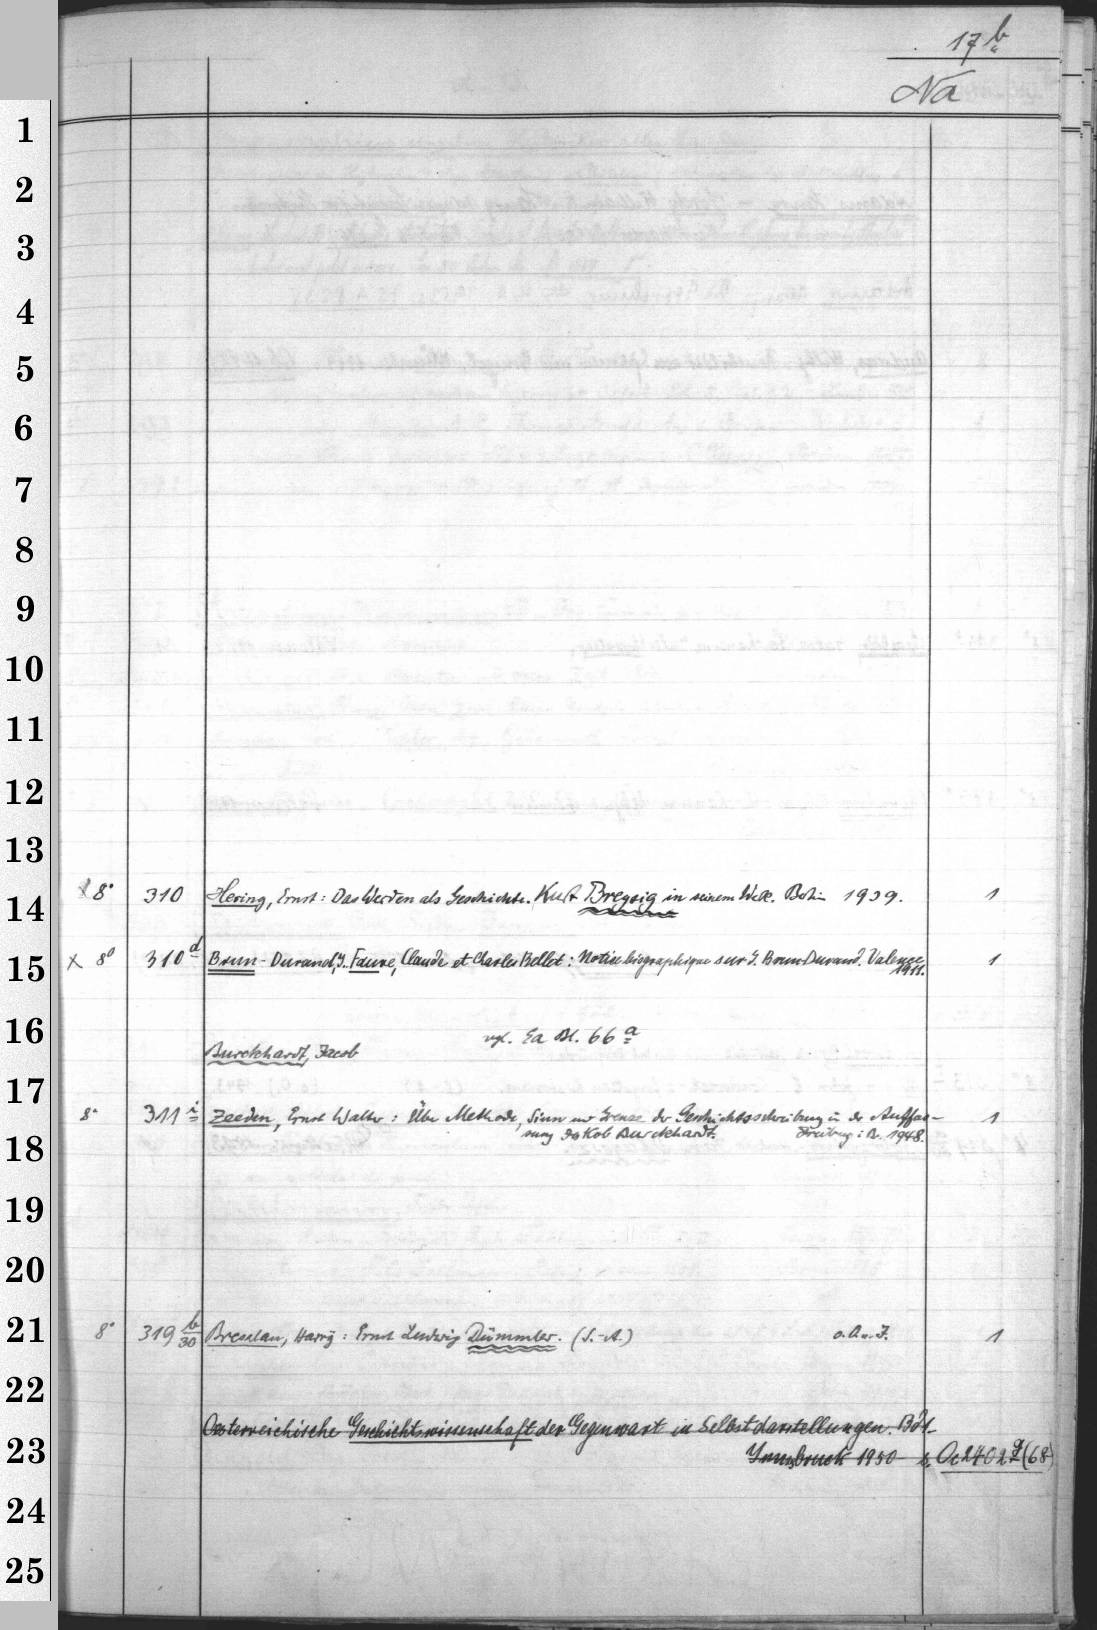 17 b
Na
1
2
3
4
5
6
7
8
9
10
11
12
13
14
x 8° 310 Hering, Ernst: Das Werden als Geschichte. Kurt Breysig in seinem Werk. Berlin 1939. 1
15
x 8° 310 d Brun-Durand, J. Faure, Claude et Charles Bellet: Notice biographique sur J. Brun-Durand. Valence 1
1911.
16
vgl. Ea Bl. 66 a
Burckhardt, Jacob
17
8° 311 i Zeeden, Ernst Walter: Über Methode, Sinn und Grenze der Geschichtsschreibung in der Auffas- 1
sung Jakob Burckhardt. Freiburg i. B. 1948.
18
19
20
21
8° 319 b/30 Bresslau, Harry: Ernst Ludwig Dümmler. (S.-A.) o. O. u. J. 1
22
Oesterreichische Geschichtswissenschaft der Gegenwart in Selbstdarstellungen. Bd 1-
23
Innsbruck 1950 s. Oc 2402 g (68)
24
25